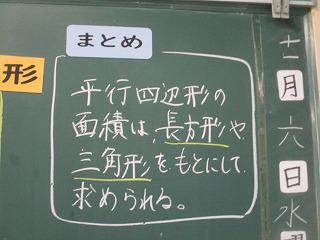 まとめ
形
平行四辺形の
面積は、長方形や
三角形をもとにして
求められる。
十二
月
六
日
水